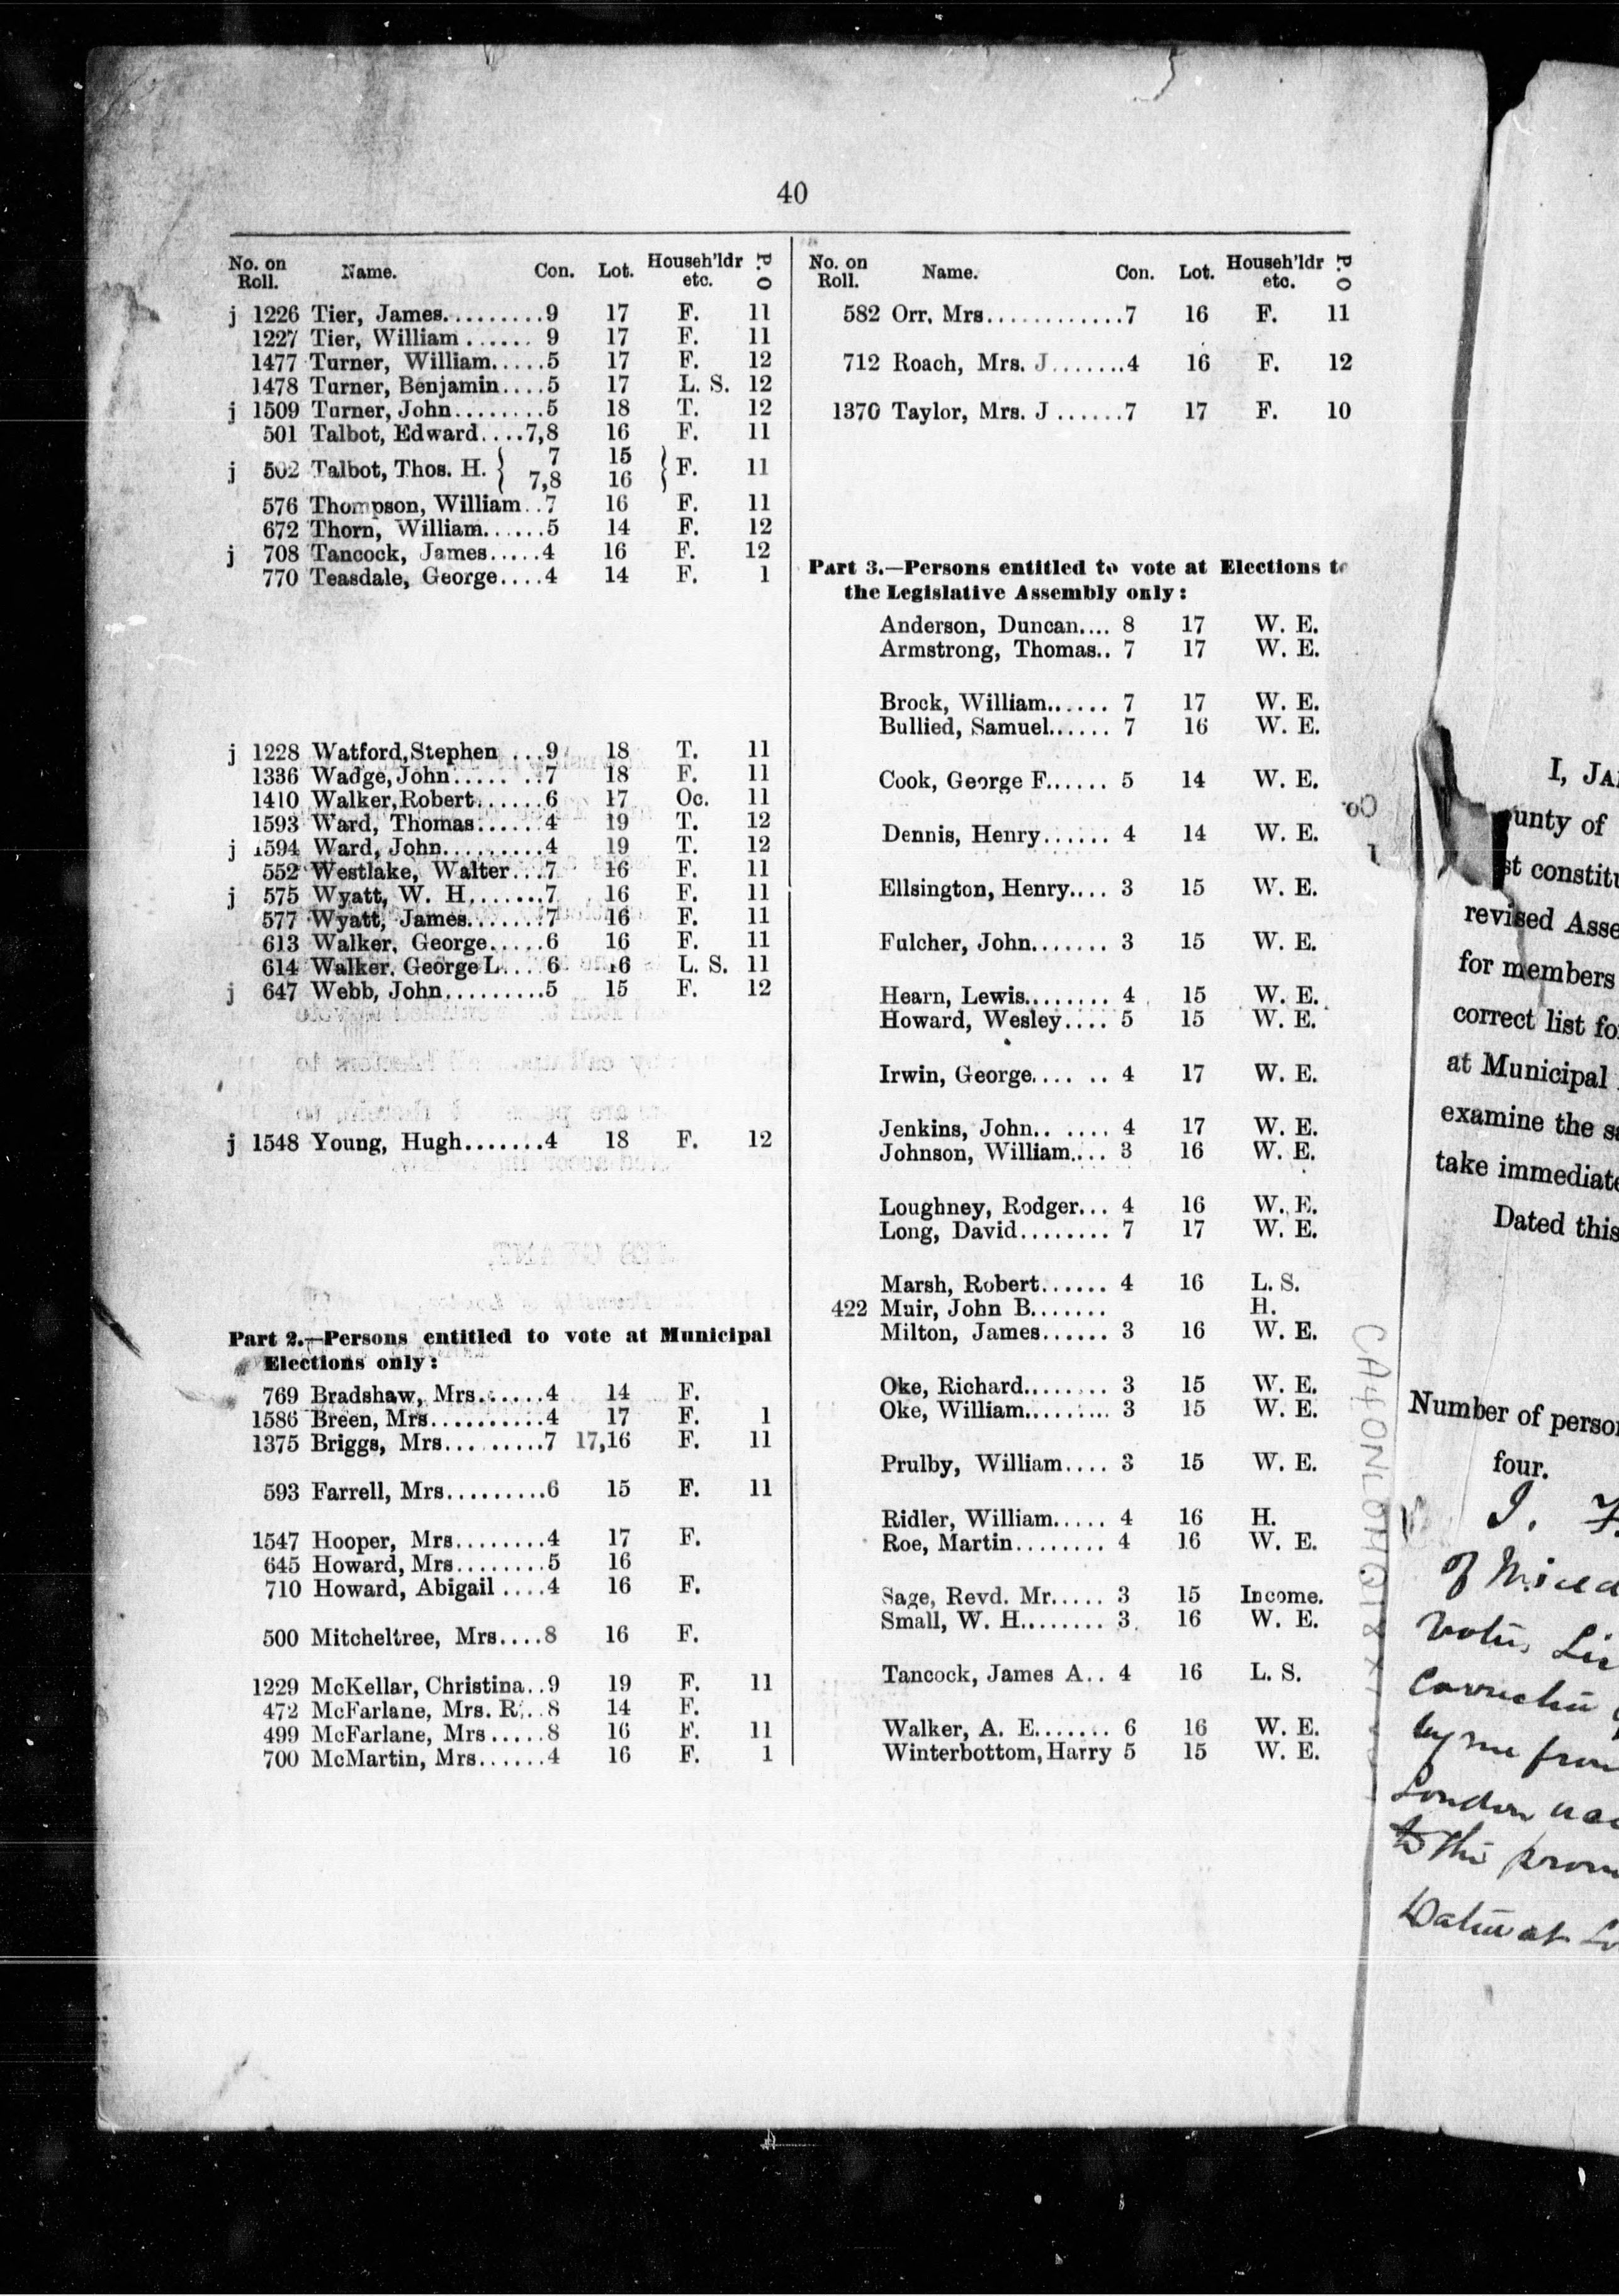 40
No. on Roll. Name. Con. Lot. Househ'ldr etc. P. O
j 1226 Tier, James.........9 17 F. 11
1227 Tier, William ...... 9 17 F. 11
1477 Turner, William.....5 17 F. 12
1478 Turner, Benjamin....5 17 L. S. 12
j 1509 Turner, John........5 18 T. 12
501 Talbot, Edward....7,8 16 F. 11
j 502 Talbot, Thos. H. { 7 15 } F. 11
7,8 16
576 Thompson, William..7 16 F. 11
672 Thorn, William......5 14 F. 12
j 708 Tancock, James.....4 16 F. 12
770 Teasdale, George....4 14 F. 1
j 1228 Watford, Stephen ...9 18 T. 11
1336 Wadge, John..... ..7 18 F. 11
1410 Walker, Robert......6 17 Oc. 11
1593 Ward, Thomas......4 19 T. 12
j 1594 Ward, John.........4 19 T. 12
552 Westlake, Walter...7 16 F. 11
j 575 Wyatt, W. H.......7 16 F. 11
577 Wyatt, James.......7 16 F. 11
613 Walker, George.....6 16 F. 11
614 Walker, George L... 6 16 L. S. 11
j 647 Webb, John.........5 15 F. 12
j 1548 Young, Hugh.......4 18 F. 12
Part 2.—Persons entitled to vote at Municipal
Elections only:
769 Bradshaw, Mrs......4 14 F.
1586 Breen, Mrs..........4 17 F. 1
1375 Briggs, Mrs.........7 17,16 F. 11
593 Farrell, Mrs.........6 15 F. 11
1547 Hooper, Mrs........4 17 F.
645 Howard, Mrs........5 16
710 Howard, Abigail ....4 16 F.
500 Mitcheltree, Mrs....8 16 F.
1229 McKellar, Christina..9 19 F. 11
472 McFarlane, Mrs. R...8 14 F.
499 McFarlane, Mrs.....8 16 F. 11
700 McMartin, Mrs......4 16 F. 1
No. on Roll. Name. Con. Lot. Househ'ldr etc. P. O
582 Orr, Mrs............7 16 F. 11
712 Roach, Mrs. J.......4 16 F. 12
1370 Taylor, Mrs. J ......7 17 F. 10
Part 3.—Persons entitled to vote at Elections to
the Legislative Assembly only:
Anderson, Duncan.... 8 17 W. E.
Armstrong, Thomas.. 7 17 W. E.
Brock, William...... 7 17 W. E.
Bullied, Samuel...... 7 16 W. E.
Cook, George F...... 5 14 W. E.
Dennis, Henry...... 4 14 W. E.
Ellsington, Henry.... 3 15 W. E.
Fulcher, John....... 3 15 W. E.
Hearn, Lewis........ 4 15 W. E.
Howard, Wesley.... 5 15 W. E.
Irwin, George.... .. 4 17 W. E.
Jenkins, John.. .... 4 17 W. E.
Johnson, William.... 3 16 W. E.
Loughney, Rodger... 4 16 W. E.
Long, David........ 7 17 W. E.
Marsh, Robert...... 4 16 L. S.
422 Muir, John B....... H.
Milton, James...... 3 16 W. E.
Oke, Richard........ 3 15 W. E.
Oke, William........ 3 15 W. E.
Prulby, William.... 3 15 W. E.
Ridler, William..... 4 16 H.
Roe, Martin........ 4 16 W. E.
Sage, Revd. Mr..... 3 15 Income.
Small, W. H........ 3 16 W. E.
Tancock, James A.. 4 16 L. S.
Walker, A. E....... 6 16 W. E.
Winterbottom, Harry 5 15 W. E.
I, JA
unty of
st constitu
revised Asse
for members
correct list fo
at Municipal
examine the s
take immediate
Dated this
Number of perso
four.
I.
of
Voters Lis
by me from
London
to the